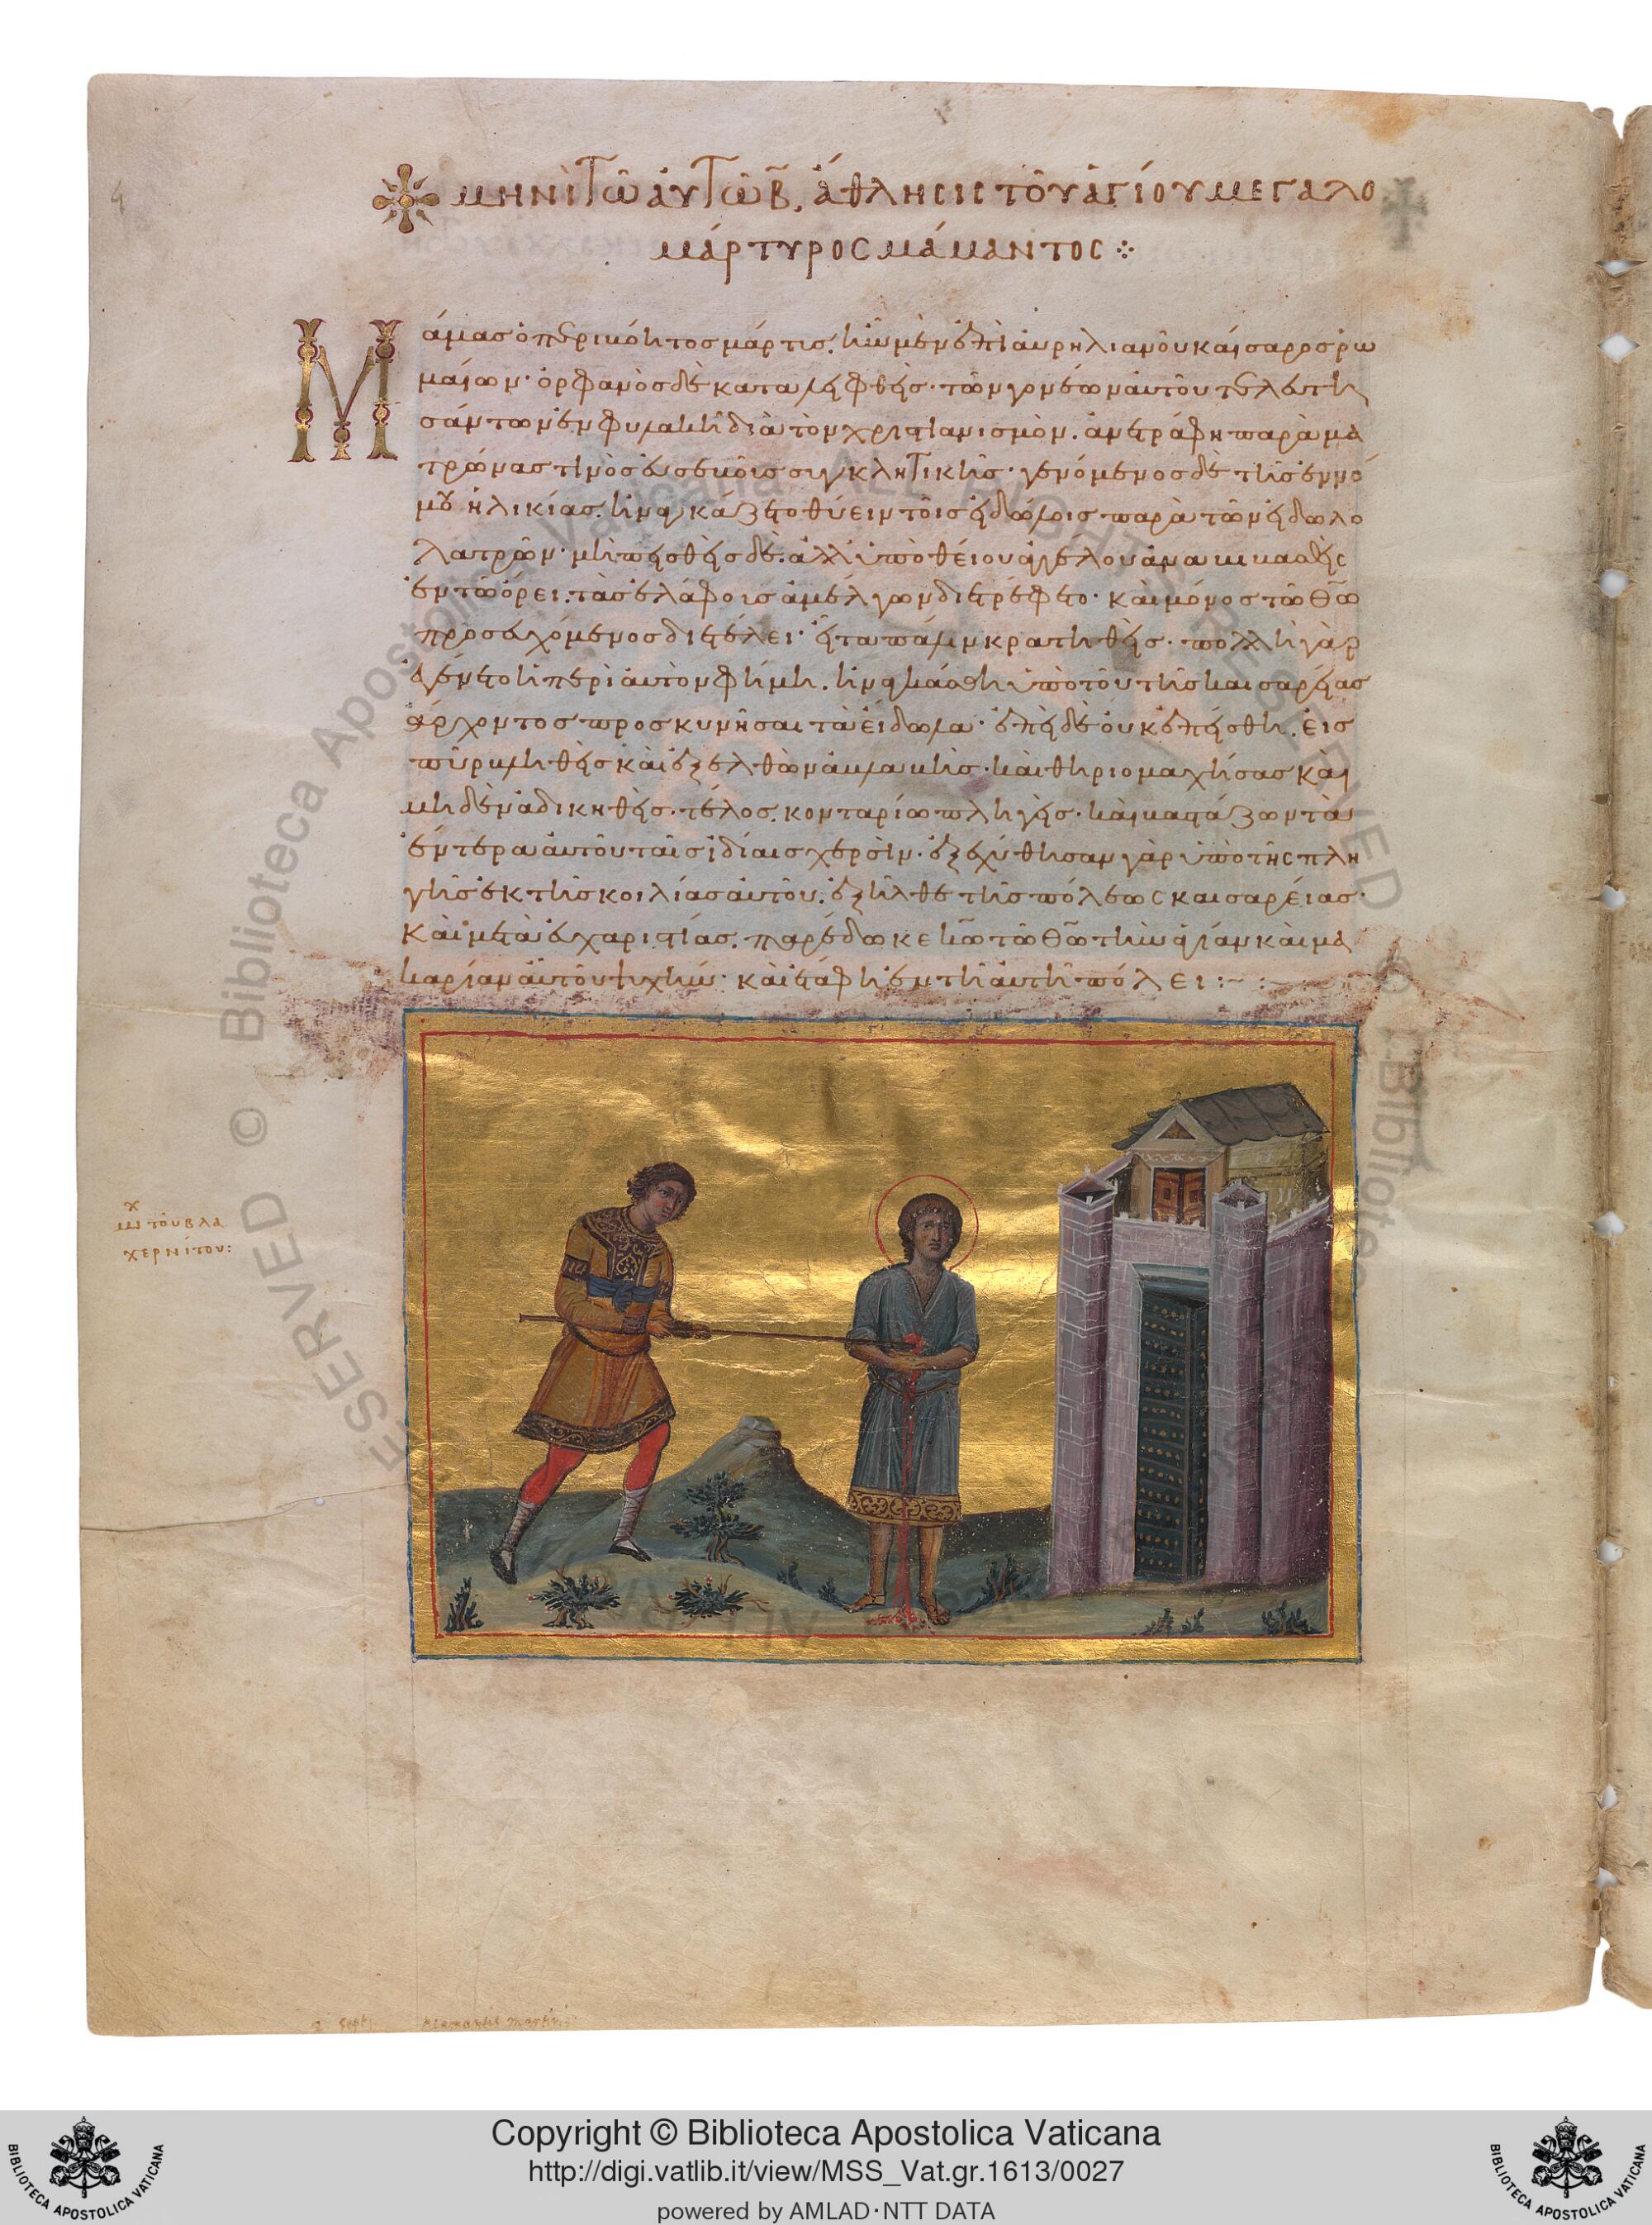 μηνὶ τῶ αὐτῶ β, ἄθλησις τοῦ ἁγίου μεγαλο
μάρτυρος μάμαντος
Μάμας ὁ περιβόητος μάρτις. ἦν μὲν ἐπὶ αὐρηλιανοῦ καίσαρος ῥω
μαίων· ὀρφανὸς δὲ καταλειφθεὶς· τῶν γονέων αὐτοῦ τελευτη
σάντων ἐν φυλακῆ διὰ τὸν χριστιανισμὸν. ἀνετράφη παρὰ μα
τρώνας τινὸς εὐσεβοῖς συγκλητικῆς· γενόμενος δὲ τῆς ἐννό
μου ἡλικίας. ἠναγκάζετο θύειν τοῖς εἰδώλοις παρὰ τῶν εἰδωλο
λατρῶν· μὴ πεισθεὶς δὲ. ἀλλ' ὑπὸ θείου ἀγγέλου
ἐν τῶ ὄρει. τὰς ἐλάφοις ἀμέλγων διετρέφετο· καὶ μόνος τῶ θῶ
προσευχόμενος διετέλει· εἶτα πάλιν κρατηθεὶς· πολλὴ γὰρ
ἐγένετο ἡ περὶ αὐτὸν φήμη. ἠναγκάσθη ὑπὸ τοῦ τῆς καισαρείας
ἄρχοντος προσκυνῆσαι τὰ εἴδωλα· ἐπεὶ δὲ οὐκ ἐπείσθη. εἰς
πῦρ βληθεὶς καὶ ἐξελθὼν ἀβλαβὴς· καὶ θηριομαχήσας καὶ
μηδὲν ἀδικηθεὶς· τέλος. κονταρίω πληγεὶς· καὶ βαστάζων τὰ
ἔντερα αὐτοῦ ταῖς ἰδίαις χερσὶν. ἐξεχύθησαν γὰρ ὑπὸ τῆς πλη
γῆς ἐκ τῆς κοιλίας αὐτοῦ. ἐξῆλθε τῆς πόλεως καισαρείας·
καὶ μετὰ εὐχαριστίας. παρέδωκε κῶ τῶ θῶ τὴν ἁγίαν καὶ μα
καρίαν αὐτοῦ ψυχὴν· καὶ ἐτάφη ἐν τῆ αὐτῆ πόλει :~
μχ τοῦ βλα
χερνίτου:
4
2 Sept. Mamantis Martiris
Biblioteca Apostolica Vaticana ALL RIGHTS RESERVED ©
Copyright © Biblioteca Apostolica Vaticana
http://digi.vatlib.it/view/MSS_Vat.gr.1613/0027
powered by AMLAD·NTT DATA
BIBLIOTECA APOSTOLICA VATICANA
BIBLIOTECA APOSTOLICA VATICANA